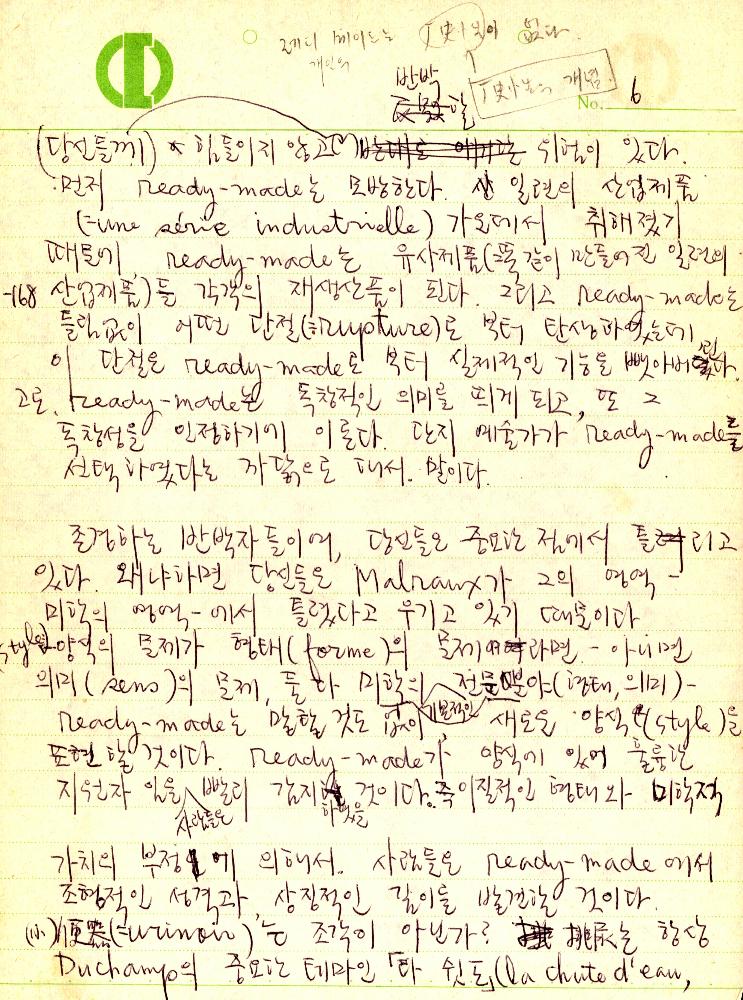 레디 메이드는 「史」이 없다.
개인의
반박할 「史」의 개념.
No. 6
(당신들께) 힘들이지 않고 위험이 있다.
먼저 ready-made는 모방한다. 일련의 산업제품
(=une série industrielle) 가운데서 취해졌기
때문에 ready-made는 유사제품(=똑같이 만들어진 일련의
-168 산업제품)들 각각의 재생산품이 된다. 그리고 ready-made는
틀림없이 어떤 단절(=rupture)로 부터 탄생하였는데
이 단절은 ready-made로 부터 실제적인 기능을 뺏아버린다.
고로, ready-made는 독창적인 의미를 띄게 되고, 또 그
독창성을 인정하기에 이른다. 단지 예술가가 ready-made를
선택하였다는 까닭으로 해서 말이다.
존경하는 반박자들이여, 당신들은 중요한 점에서 틀리고
있다. 왜냐하면 당신들은 Malraux가 그의 영역-
미학의 영역-에서 틀렸다고 우기고 있기 때문이다
style 양식의 문제가 형태(forme)의 문제라면 - 아니면
의미(sens)의 문제, 둘 다 미학의 기본적인 분야(형태, 의미)-
ready-made는 말할 것도 없이, 새로운 양식(style)을
표현할 것이다. ready-made가 양식에 있어 훌륭한
지원자 임을 사람들은 빨리 감지하였을 것이다. 즉 이질적인 형태와 미학적
가치의 부정에 의해서. 사람들은 ready-made에서
조형적인 성격과 상징적인 깊이를 발견할 것이다.
(小)便器(=urinoir)는 조각이 아닌가? 는 항상
Duchamp의 중요한 테마인 (la chute d'eau,